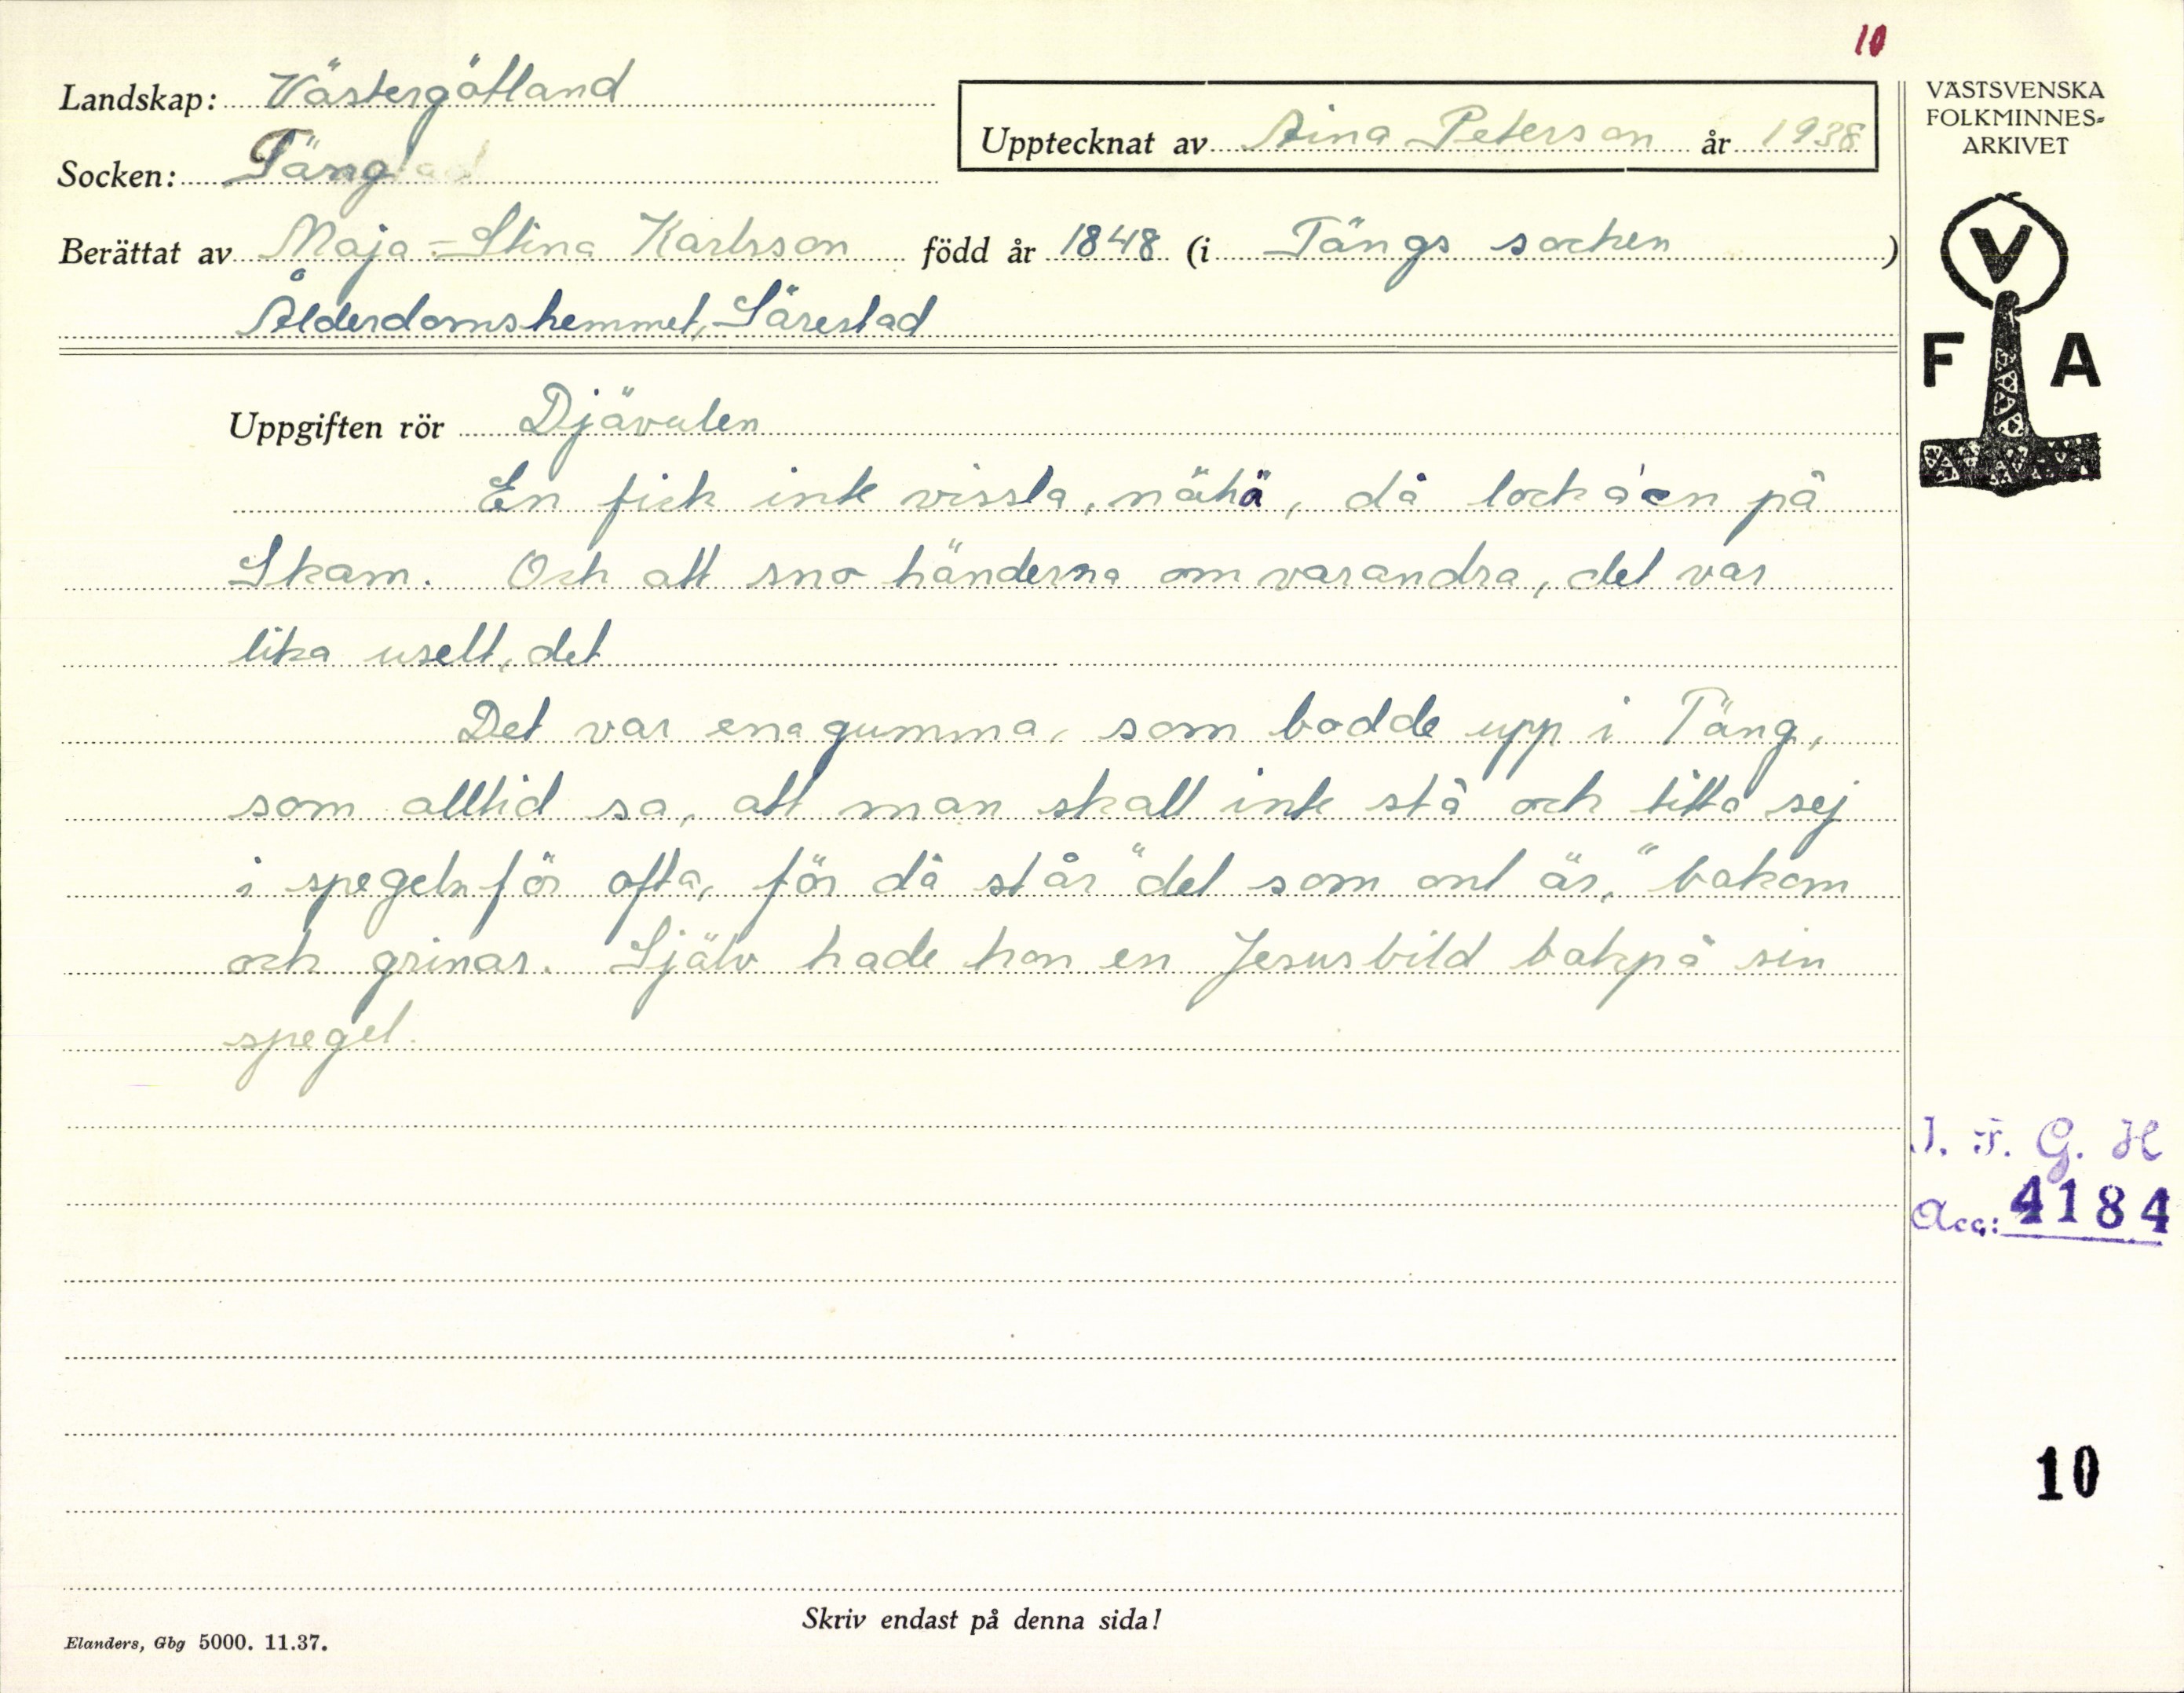 10
Landskap: Västergötland
Upptecknat av Aina Peterson år 1938
VÄSTSVENSKA
FOLKMINNES-
ARKIVET
Socken: Täng
Berättat av Maja-Stina Karlsson född år 1848 (i Tängs socken )
Ålderdomshemmet, Särestad
V
F A
Uppgiften rör Djävulen
En fick inte vissla, nähä, då locka'en på
Skam. Och att sno händerna om varandra, det var
lika uselt, det
Det var ena gumma, som bodde upp i Täng,
som alltid sa, att man skall inte stå och titta sej
i spegeln för ofta, för då står "det som ont är," bakom
och grinar. Själv hade hon en Jesusbild bakpå sin
spegel.
I. F. G. H
Acc: 4184
10
Skriv endast på denna sida!
Elanders, Gbg 5000. 11.37.